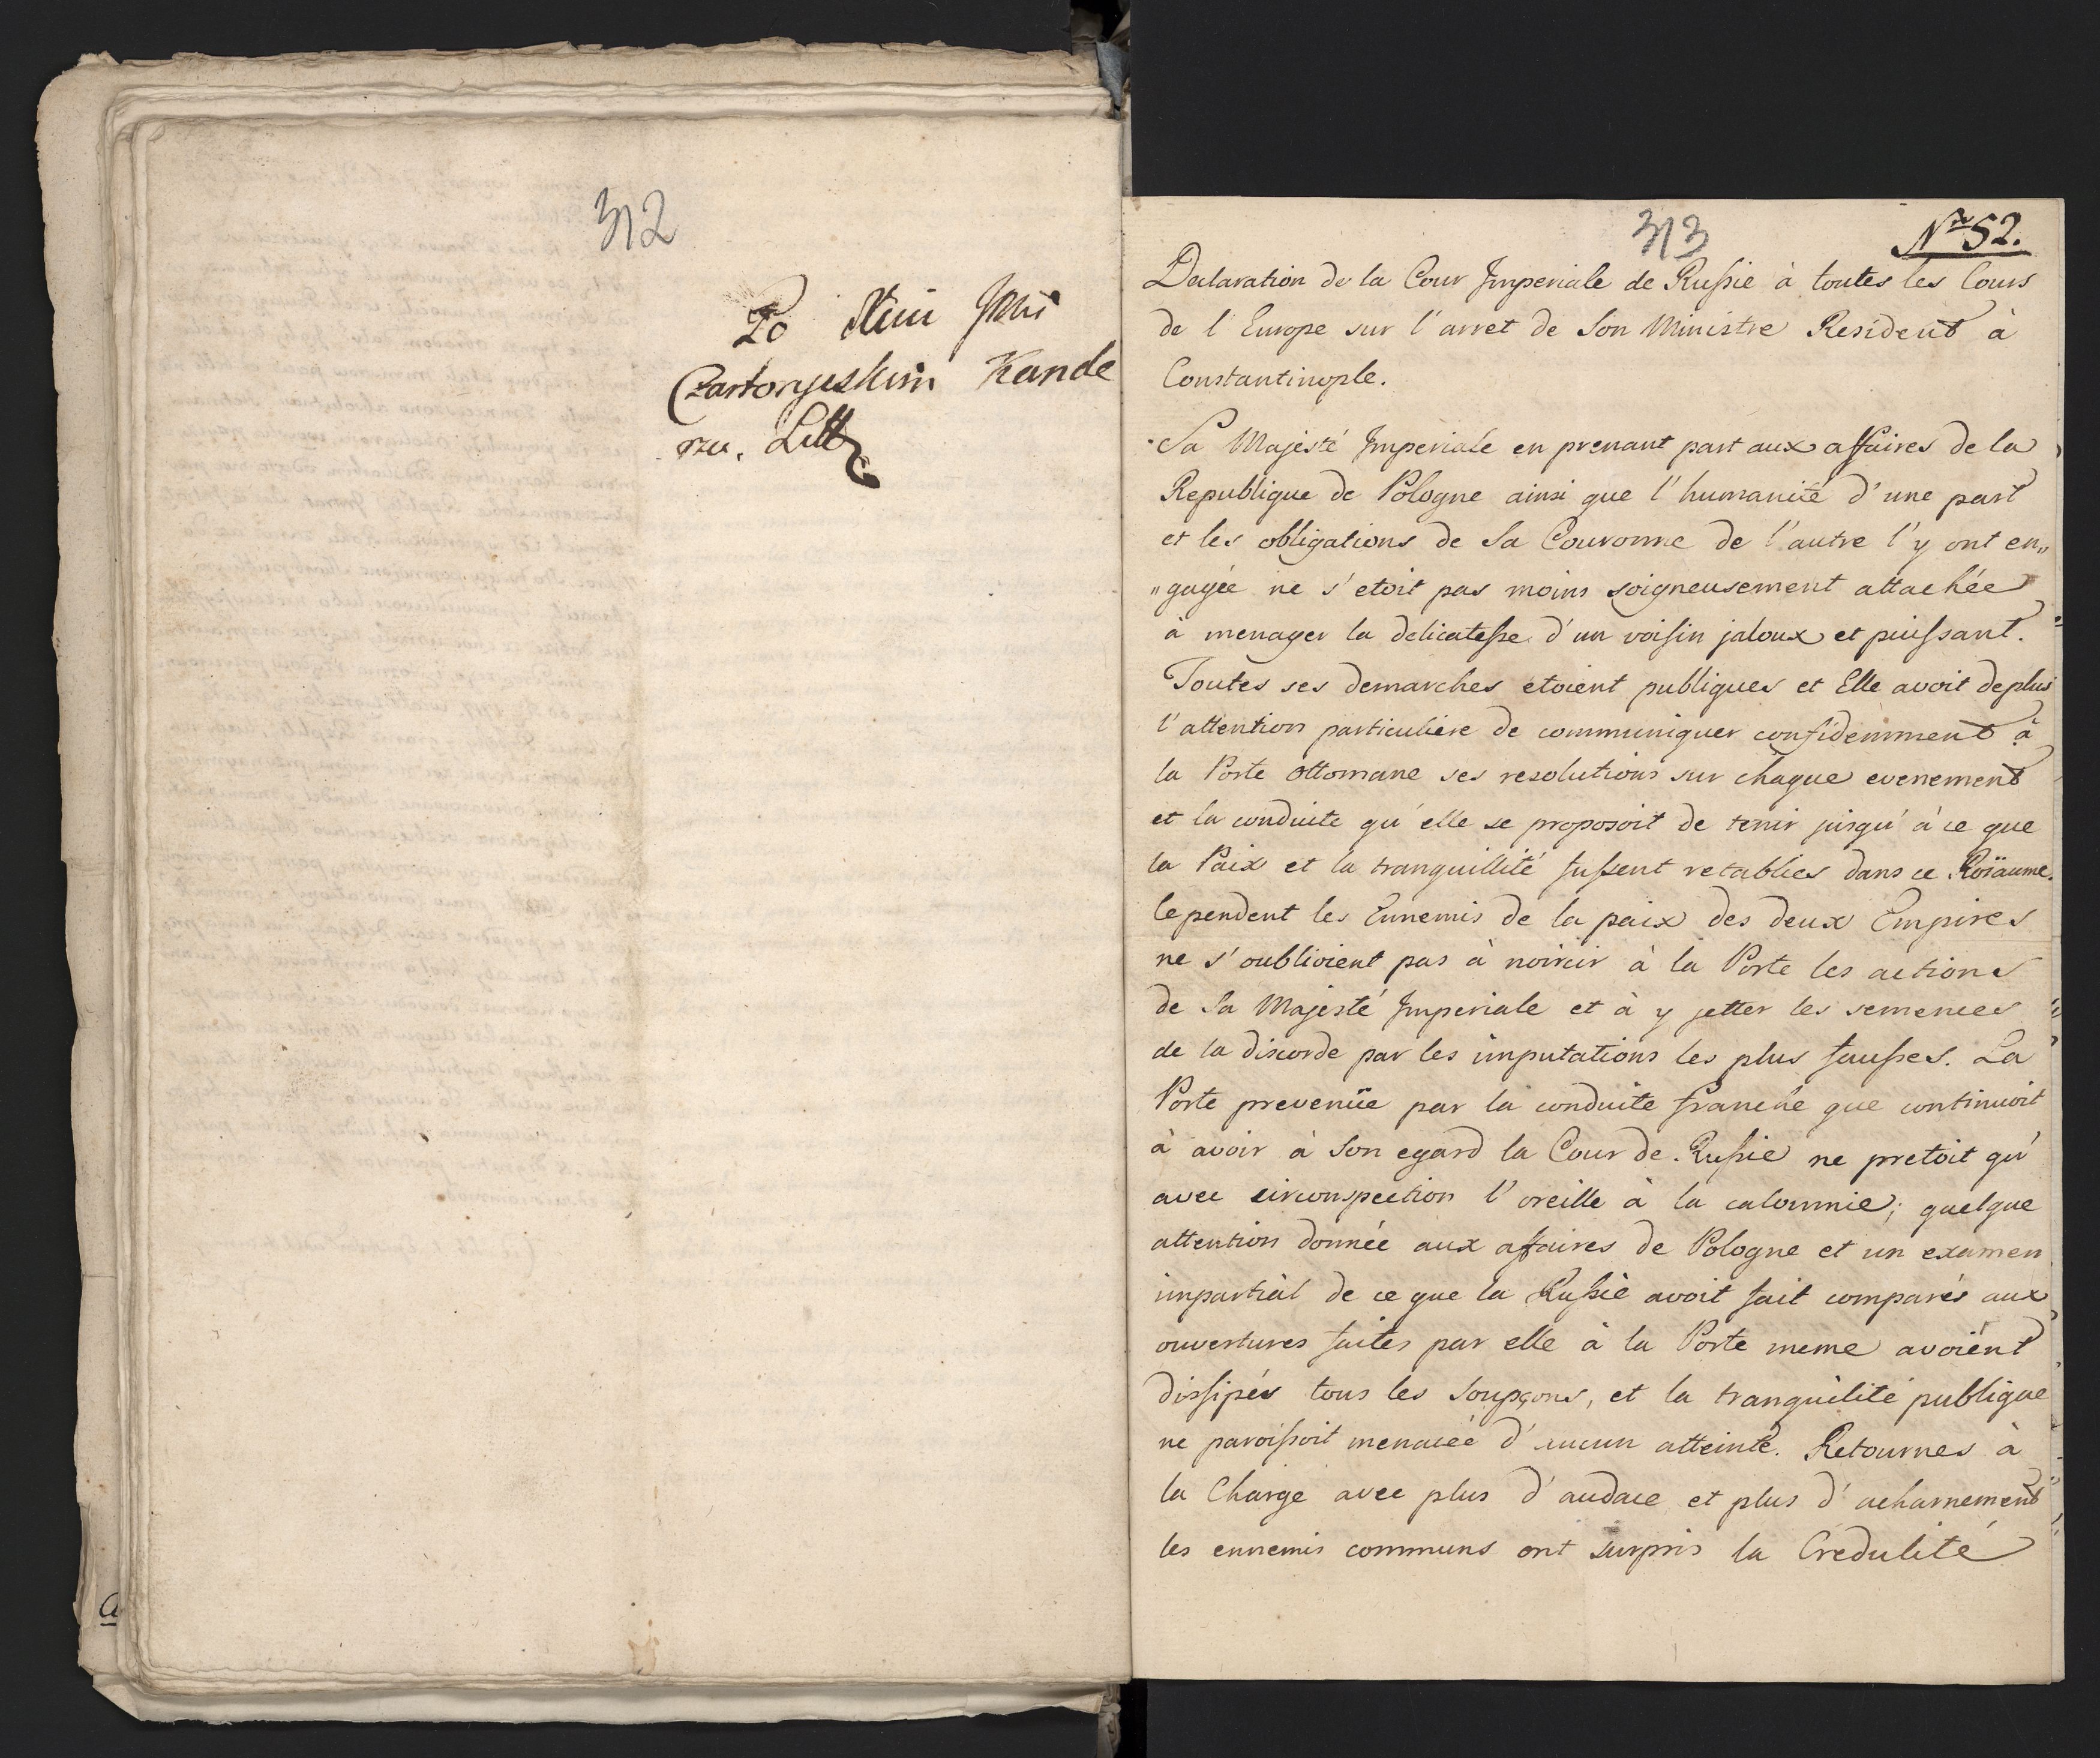 312
Do Xcia Jmci
Czartoryskim Kancle
rzu. Litt
313
Nro 52.
Declaration de la Cour Imperiale de Russie à toutes les Cours
de l'Europe sur l'arret de Son Ministre Resident à
Constantinople.
Sa Majesté Imperiale en prenant part aux affaires de la
Republique de Pologne ainsi que l'humanité d'une part
et les obligations de Sa Couronne de l'autre l'y ont en„
„gagée ne s'etoit pas moins soigneusement attachée
à menager la delicatesse d'un voisin jaloux et puissant.
Toutes ses demarches etoient publiques et Elle avoit deplus
l'attention particuliere de communiquer confidemment à
la Porte Ottomane ses resolutions sur chaque evenement
et la conduite qu'elle se proposoit de tenir jusqu'à ce que
la Paix et la tranquillité fussent retablies dans ce Roïaume.
Cependent les Ennemis de la paix des deux Empires
ne s'oublioient pas à noircir à la Porte les actions
de Sa Majesté Imperiale et à y jetter les semences
de la discorde par les imputations les plus fausses. La
Porte prevenüe par la conduite franche que continuoit
à avoir à Son egard la Cour de Russie ne pretoit qu'
avec circonspection l'oreille à la calomnie; quelque
attention donnée aux affaires de Pologne et un examen
impartial de ce que la Russie avoit fait comparés aux
ouvertures faites par elle à la Porte meme avoient
dissipés tous les Soupçons, et la tranquilité publique
ne paroissoit menacée d'aucun atteinte. Retournes à
la Charge avec plus d'audace et plus d'acharnement
les ennemis communs ont surpris la Credulité